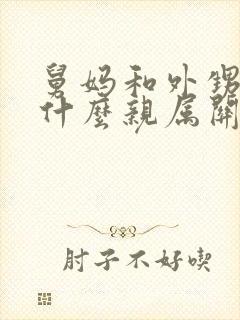 舅妈和外甥
什麼親属關
肘子不好喫